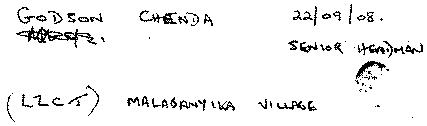 GODSON CHENDA 22/09/08.
SENIOR HEADMAN
(LZCT) MALAGANYIKA VILLAGE